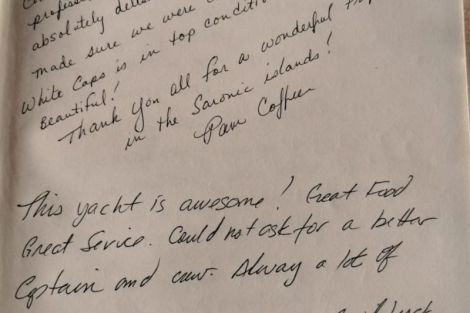 profess
absolutely
made sure we were
White Caps is in top condition
Beautiful!
Thank you all for a wonderful
in the Saronic islands!
Pam
This yacht is awesome! Great Food
Great Service. Could not ask for a better
Captain and crew. Alway a lot of